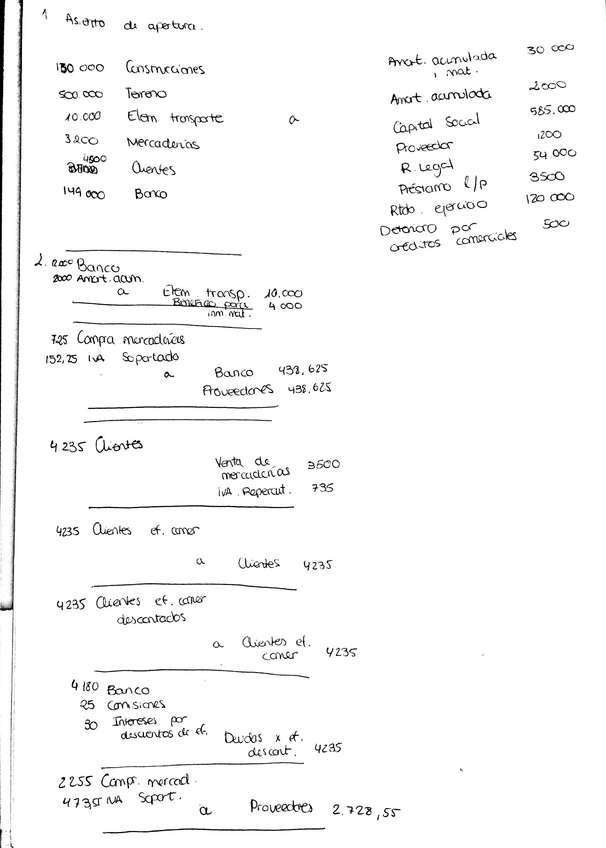 1 Asiento de apertura.
130 000 Construcciones
500.000 Terreno
10.000 Elem transporte a
3200 Mercaderías
4500 Clientes
149 000 Banco
Amort. acumulada 30 000
i mat.
Amort. acumulada 2000
Capital Social 585.000
Proveedor 1200
R. Legal 54.000
Préstamo l/p 3500
Rtdo. ejercicio 120 000
Deterioro por 500
créditos comerciales
2. 12000 Banco
2000 Amort. acum.
a Elem transp. 10.000
Beneficio para 4 000
inm. nat.
725 Compra mercaderías
152,25 IVA Soportado
a Banco 438,625
Proveedores 438,625
4.235 Clientes
Venta de 3500
mercaderías
IVA Repercut. 735
4235 Clientes ef. comer
a Clientes 4235
4235 Clientes ef. comer
descontados
a Clientes ef. 4235
comer
4.180 Banco
25 Comisiones
30 Intereses por
descuentos de ef.
Deudas x ef. 4235
descont.
2255 Compr. mercad.
473,55 IVA Soport.
a Proveedores 2.728,55